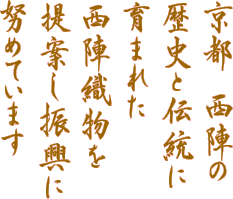 京都　西陣の
歴史と伝統に
育まれた
西陣織物を
提案し振興に
努めています